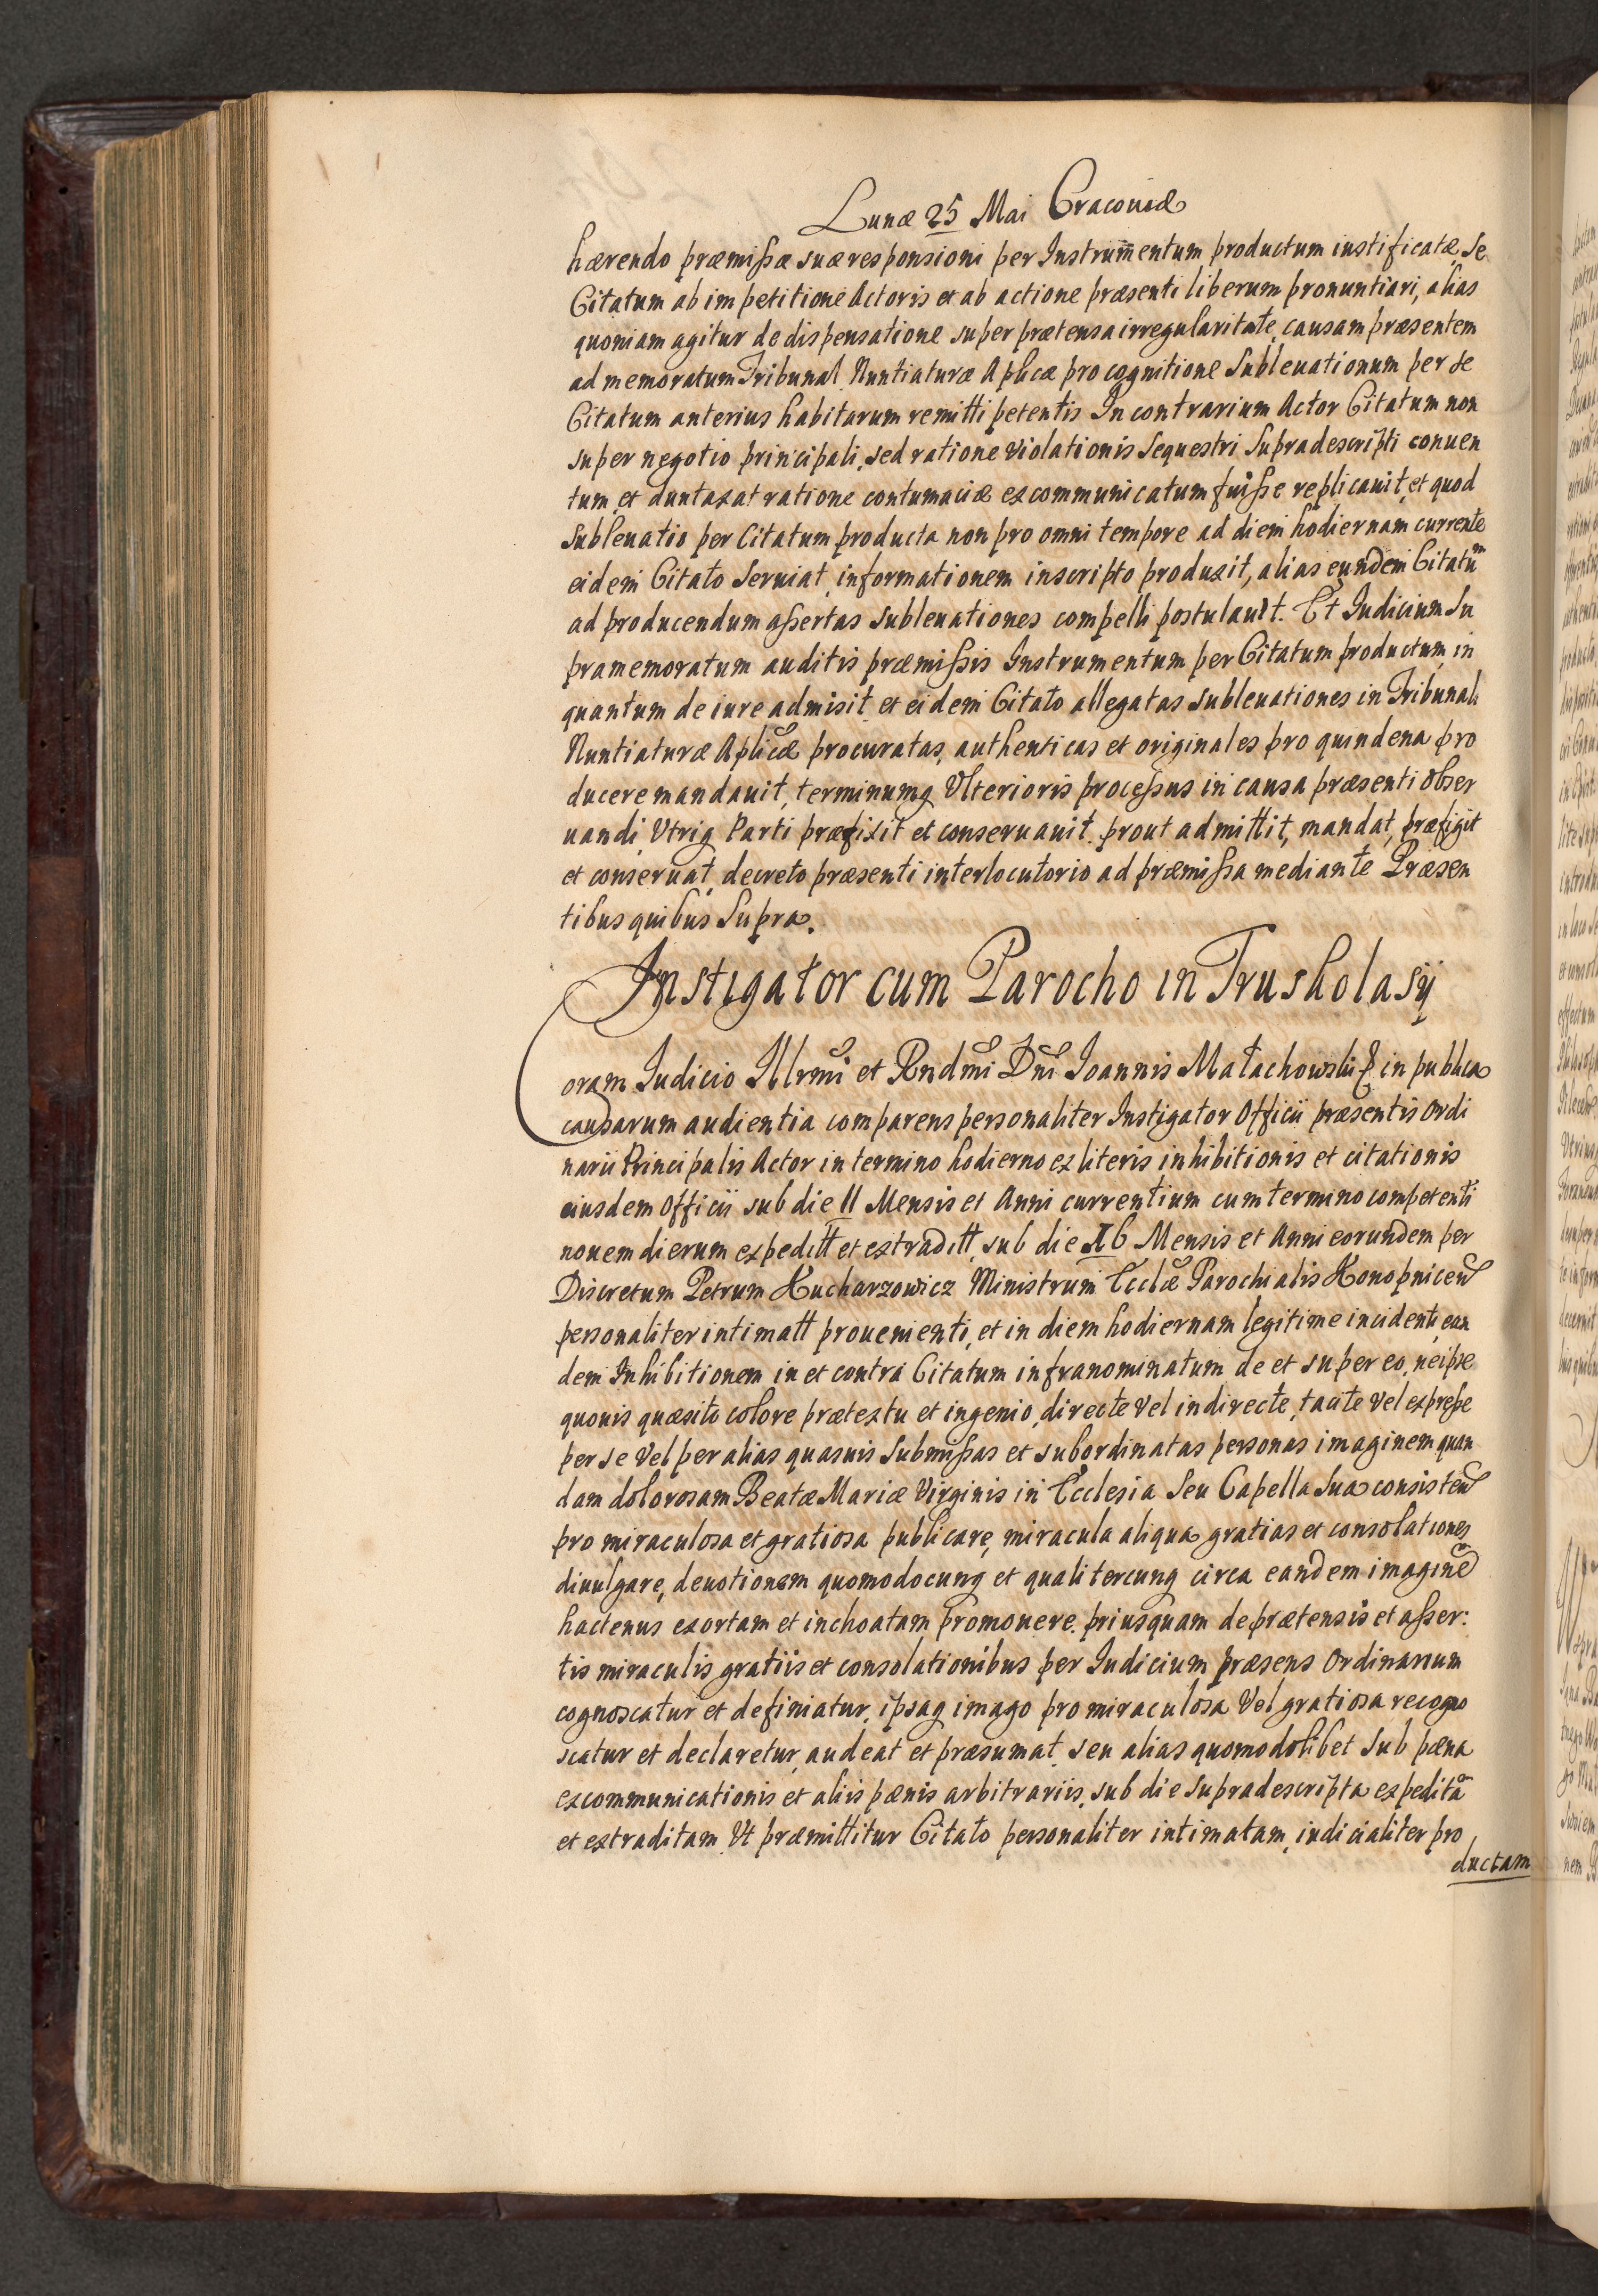 Lunæ 25 Mai Cracouiæ
hærendo præmissæ suæ responsioni per Instrum̅entum productum iustificatæ, se
Citatum ab impetitione Actoris et ab actione præsenti liberum pronuntiari, alias
quoniam agitur de dispensatione super prætensa irregularitate, causam præsentem
ad memoratum Tribunal Nuntiaturæ Aplicæ pro cognitione subleuationum per se
Citatum anterius habitarum remitti petentis In contrarium Actor Citatum non
super negotio principali, sed ratione violationis sequestri supradescripti conuen
tum, et duntaxat ratione contumaciæ excommunicatum fuisse replicauit, et quod
subleuatio per Citatum producta non pro omni tempore ad diem hodiernam currente
eidem Citato seruiat, informationem inscripto produxit, alias eundem Citatum
ad producendum assertas subleuationes compelli postulauit. Et Iudicium su
pramemoratum auditis præmissis Instrumentum per Citatum productum, in
quantum de iure admisit, et eidem Citato allegatas subleuationes in Tribunali
Nuntiaturæ Aplicæ procuratas, authenticas et originales pro quindena pro
ducere mandauit, terminumq Vlterioris processus in causa præsenti obser
uandi, Vtriq Parti præfixit et conseruauit. prout admittit, mandat, præfigit
et conseruat, decreto præsenti interlocutorio ad præmissa mediante Præsen
tibus quibus supra.
Instigator cum Parocho in Truskolasÿ
Coram Iudicio Illrmi et Rndmi Dni Ioannis Małachowski & in publica
causarum audientia comparens personaliter Instigator Officii præsentis Ordi
narii Principalis Actor in termino hodierno ex literis inhibitionis et citationis
eiusdem Officii sub die 11 Mensis et Anni currentium cum termino competenti
nouem dierum expeditt et extraditt, sub die 16 Mensis et Anni eorundem per
Discretum Petrum Kucharzowicz Ministrum Eccliæ Parochialis Konopnicen
personaliter intimatt prouenienti, et in diem hodiernam legitime incidenti, ean
dem Inhibitionem in et contra Citatum infranominatum de et super eo, ne ipse
quouis quæsito colore prætextu et ingenio, directe vel indirecte, tacite vel expresse
per se vel per alias quasuis submissas et subordinatas personas imaginem quan
dam dolorosam Beatæ Mariæ Virginis in Ecclesia seu Capella sua consisten
pro miraculosa et gratiosa publicare, miracula aliqua gratias et consolationes
diuulgare, deuotionem quomodocunq et qualitercunq circa eandem imagine
hactenus exortam et inchoatam promouere. priusquam de prætensis et asser:
tis miraculis gratiis et consolationibus per Iudicium præsens Ordinarium
cognoscatur et definiatur, ipsaq imago pro miraculosa Vel gratiosa recogno
scatur et declaretur, audeat et præsumat, seu alias quomodolibet sub pæna
excommunicationis et aliis pænis arbitrariis, sub die supradescripta expedita
et extraditam, Vt præmittitur Citato personaliter intimatam, iudicialiter pro
ductam